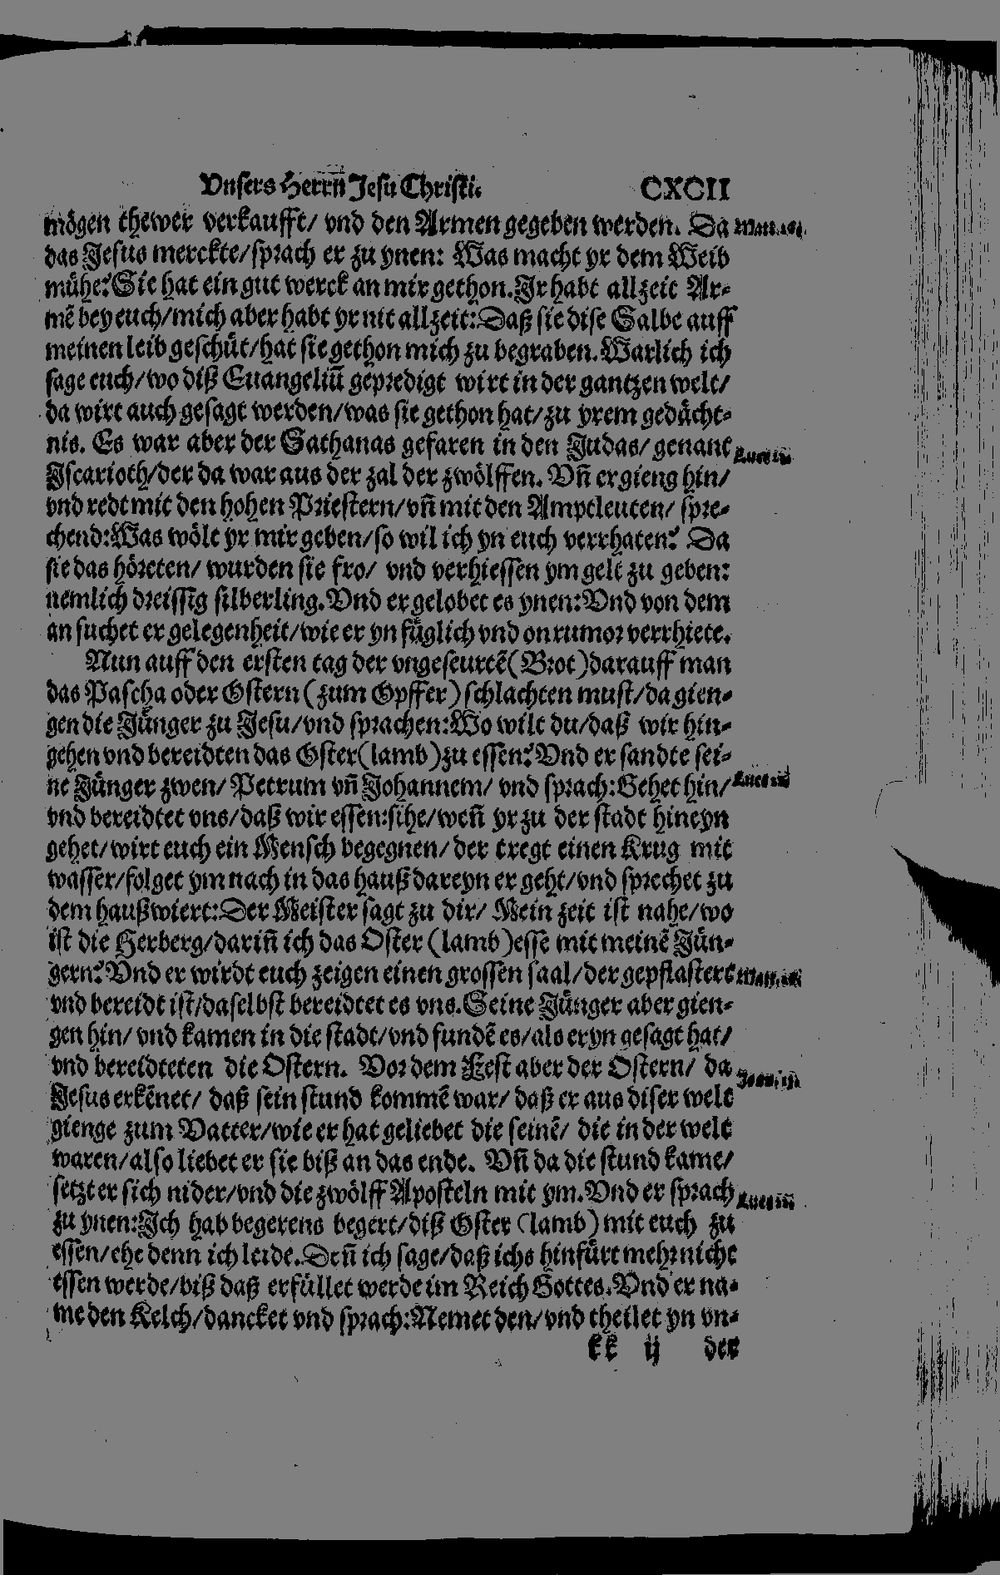 Vnsers Herrn̄ Jesu Christi. CXCII
mögen thewer verkaufft/ vnd den Armen gegeben werden. Da
das Jesus merckte/sprach er zu ynen: Was macht yr dem Weib
mühe? Sie hat ein gut werck an mir gethon. Jr habt allzeit Ar-
mē bey euch/mich aber habt yr nit allzeit: Daß sie dise Salbe auff
meinen leib geschüt/hat sie gethon mich zu begraben. Warlich ich
sage euch/wo diß Euangeliū gepredigt wirt in der gantzen welt/
da wirt auch gesagt werden/was sie gethon hat/zu yrem gedächt-
nis. Es war aber der Sathanas gefaren in den Judas/ genant
Iscarioth/der da war aus der zal der zwölffen. Vn̄ er gieng hin/
vnd redt mit den hohen Priestern/vn̄ mit den Amptleuten/ spre-
chend: Was wölt yr mir geben/so wil ich yn euch verrhaten? Da
sie das höreten/ wurden sie fro/ vnd verhiessen ym gelt zu geben:
nemlich dreissig silberling. Vnd er gelobet es ynen: Vnd von dem
an suchet er gelegenheit/wie er yn füglich vnd on rumor verrhiete.
Nun auff den ersten tag der vngeseurtē (Brot) darauff man
das Pascha oder Ostern (zum Opffer) schlachten must/da gien-
gen die Jünger zu Jesu/vnd sprachen: Wo wilt du/daß wir hin-
gehen vnd bereidten das Oster(lamb) zu essen? Vnd er sandte sei-
ne Jünger zwen/ Petrum vn̄ Johannem/ vnd sprach: Gehet hin/
vnd bereidtet vns/daß wir essen: sihe/wen̄ yr zu der stadt hineyn
gehet/wirt euch ein Mensch begegnen/ der tregt einen Krug mit
wasser/folget ym nach in das hauß dareyn er geht/vnd sprechet zu
dem haußwiert: Der Meister sagt zu dir/ Mein zeit ist nahe/wo
ist die Herberg/darin̄ ich das Oster (lamb) esse mit meinē Jün-
gern? Vnd er wirdt euch zeigen einen grossen saal/der gepflastert
vnd bereidt ist/daselbst bereidtet es vns. Seine Jünger aber gien-
gen hin/ vnd kamen in die stadt/vnd fundē es/als er yn gesagt hat/
vnd bereidteten die Ostern. Vor dem Fest aber der Ostern/ da
Jesus erkēnet/ daß sein stund kommē war/ daß er aus diser welt
gienge zum Vatter/wie er hat geliebet die seinē/ die in der welt
waren/also liebet er sie biß an das ende. Vn̄ da die stund kame/
setzt er sich nider/vnd die zwölff Aposteln mit ym. Vnd er sprach
zu ynen: Ich hab begerens begert/diß Oster (lamb) mit euch zu
essen/ehe denn ich leide. Den̄ ich sage/daß ichs hinfürt mehr nicht
essen werde/biß daß erfüllet werde im Reich Gottes. Vnd er na-
me den Kelch/dancket vnd sprach: Nemet den/vnd theilet yn vn-
kk ij der